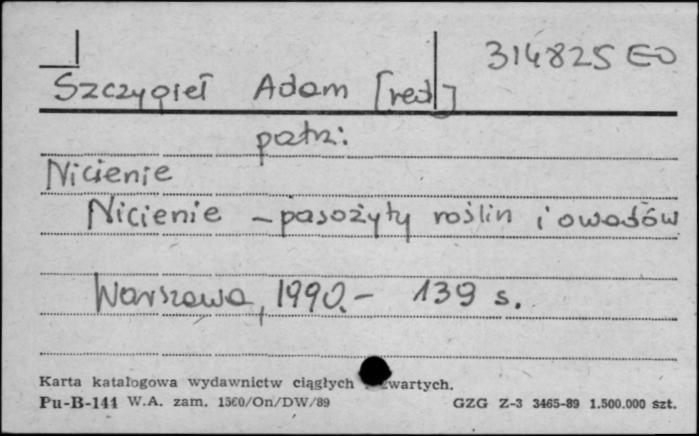 314825 EO
Szczygieł Adam [red]
patrz:
Nicienie
Nicienie - pasożyty roślin i owadów
Warszawa, 1990.- 139 s.
Karta katalogowa wydawnictw ciągłych zwartych.
Pu-B-141 W.A. zam. 1560/On/DW/89 GZG Z-3 3465-89 1.500.000 szt.